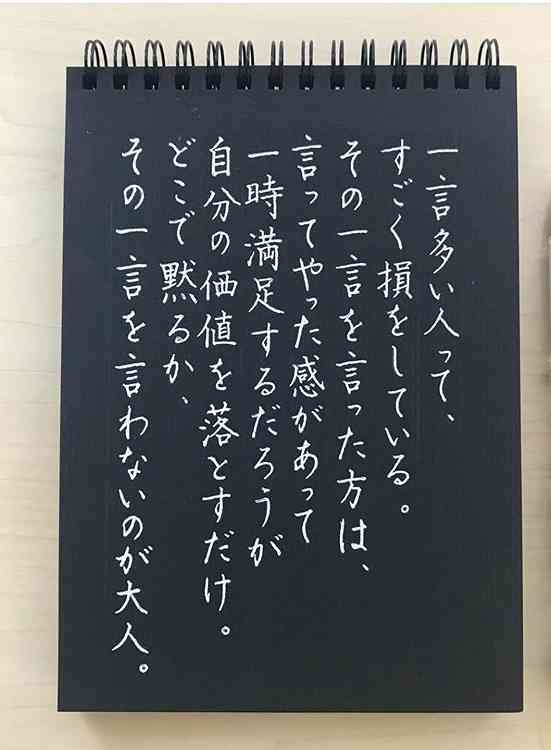 一言多い人って、
すごく損をしている。
その一言を言った方は、
言ってやった感があって
一時満足するだろうが
自分の価値を落とすだけ。
どこで黙るか、
その一言を言わないのが大人。